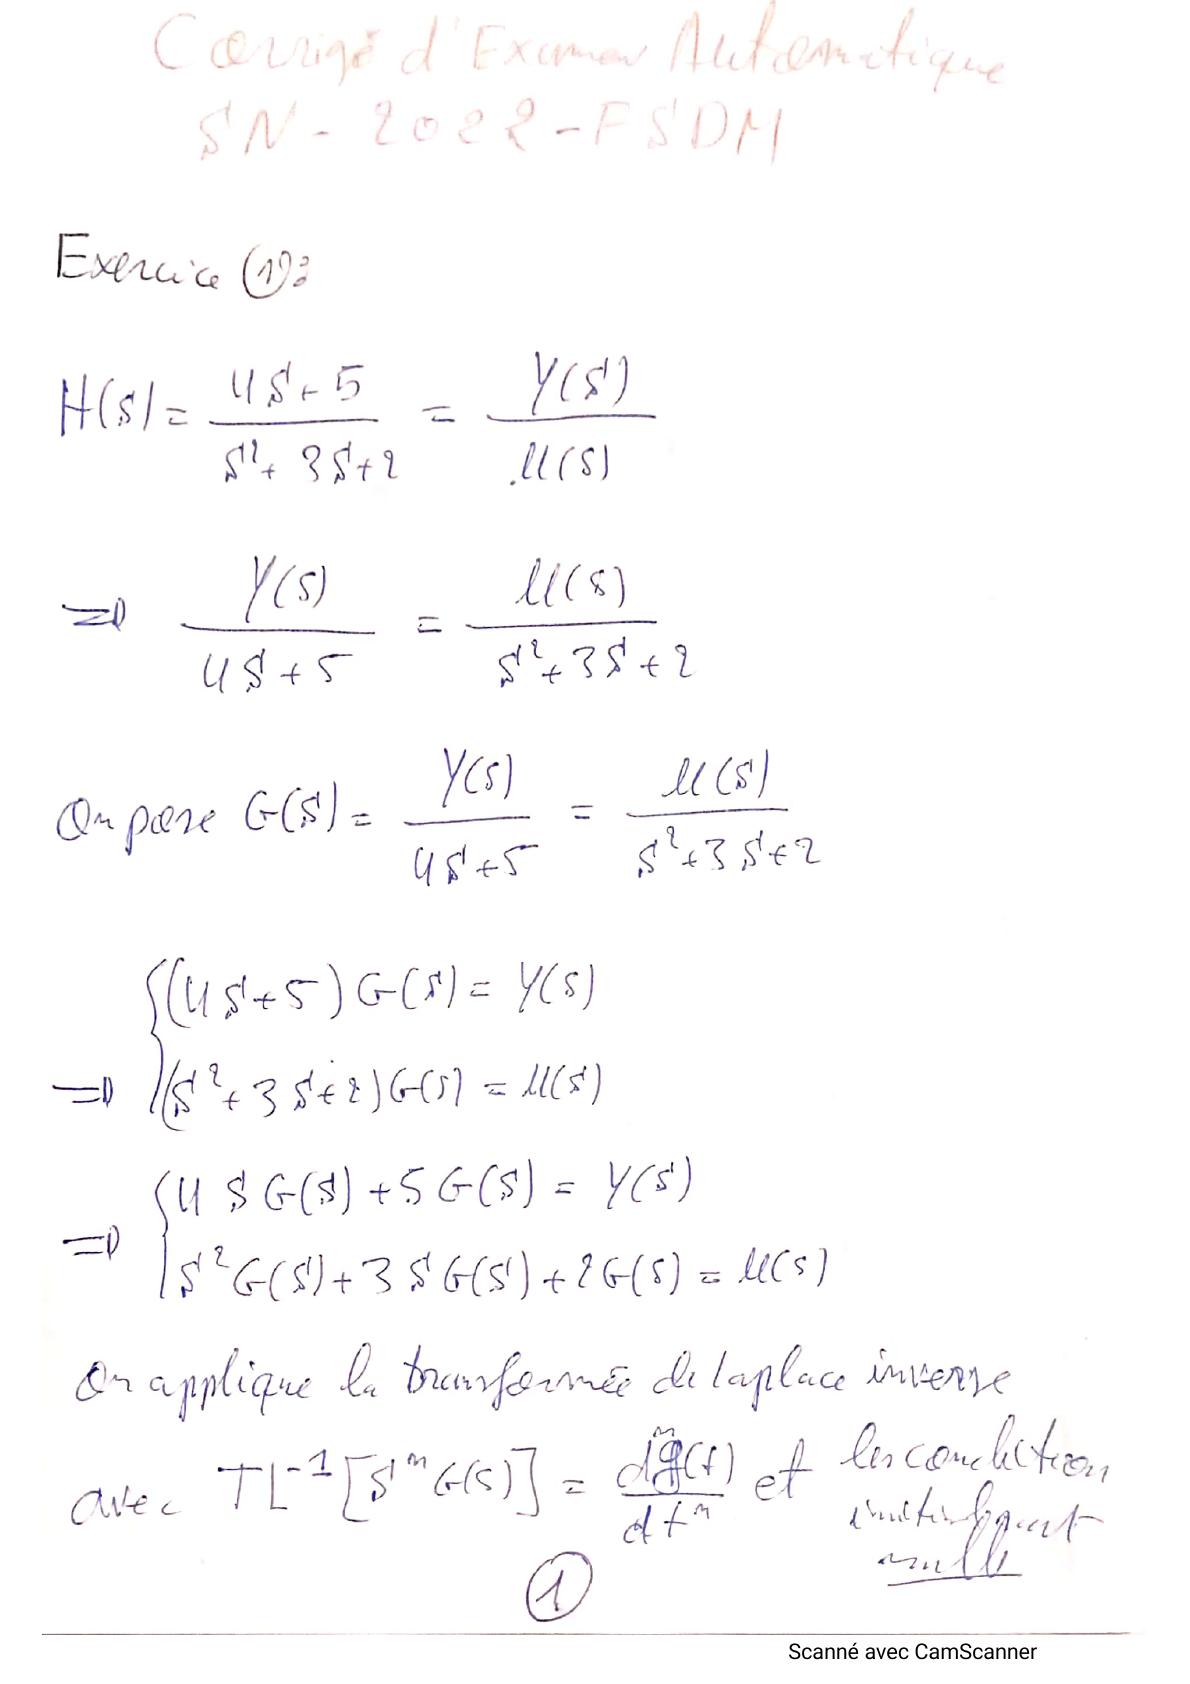 Corrigé d'Examen Automatique
SN-2022-FSDM
Exercice (1):
H(s) = (4S+5)/(S²+3S+2) = Y(s)/U(s)
=> Y(s)/(4S+5) = U(s)/(S²+3S+2)
On pose G(s) = Y(s)/(4S+5) = U(s)/(S²+3S+2)
{(4S+5)G(s) = Y(s)
=> (S²+3S+2)G(s) = U(s)
{4SG(s)+5G(s) = Y(s)
=> S²G(s)+3SG(s)+2G(s) = U(s)
On applique la transformée de laplace inverse
avec TL⁻¹[SⁿG(s)] = dⁿg(t)/dtⁿ et les condition
nulle
1
Scanné avec CamScanner